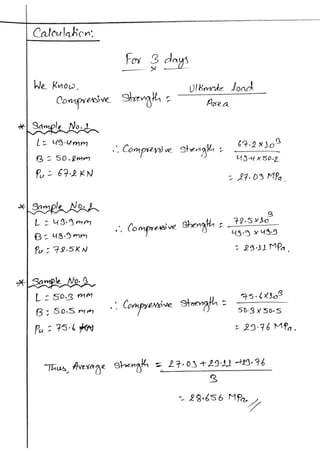 Calculation:
For 3 days
We Know,
Compressive Strength = Ultimate load
Area
* Sample No. 1
L = 49.4mm
B = 50.2mm
Pu = 67.2 KN
∴ Compressive Strength = 67.2 x 10³
49.4 x 50.2
= 27.09 MPa.
* Sample No. 2
L = 49.9mm
B = 49.9mm
Pu = 72.5KN
∴ Compressive Strength = 72.5 x 10³
49.9 x 49.9
= 29.11 MPa.
* Sample No. 3
L = 50.3 mm
B = 50.5 mm
Pu = 75.6 KN
∴ Compressive Strength = 75.6 x 10³
50.3 x 50.5
= 29.76 MPa.
Thus, Average Strength = 27.09 + 29.11 + 29.76
3
= 28.656 MPa.